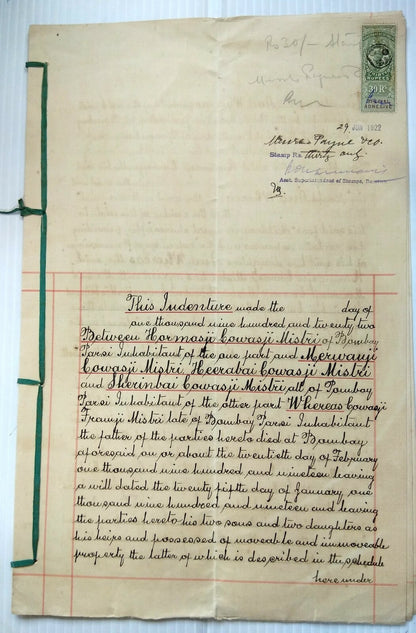 Rs 30/-
30 Rs
ADHESIVE
29 JUN 1922
Payne & Co.
Stamp Rs. thirty only
Asst. Superintendent of Stamps, Bombay
This Indenture made the day of
one thousand nine hundred and twenty two
Between Hormosji Cowasji Mistri of Bombay
Parsi Inhabitant of the one part and Merwanji
Cowasji Mistri, Heerabai Cowasji Mistri
and Sherinbai Cowasji Mistri all of Bombay
Parsi Inhabitant of the other part Whereas Cowasji
Framji Mistri late of Bombay Parsi Inhabitant
the father of the parties hereto died at Bombay
aforesaid on or about the twentieth day of February
one thousand nine hundred and nineteen leaving
a will dated the twenty fifth day of January one
thousand nine hundred and nineteen and leaving
the parties hereto his two sons and two daughters as
his heirs and possessed of moveable and immoveable
property the latter of which is described in the schedule
hereunder